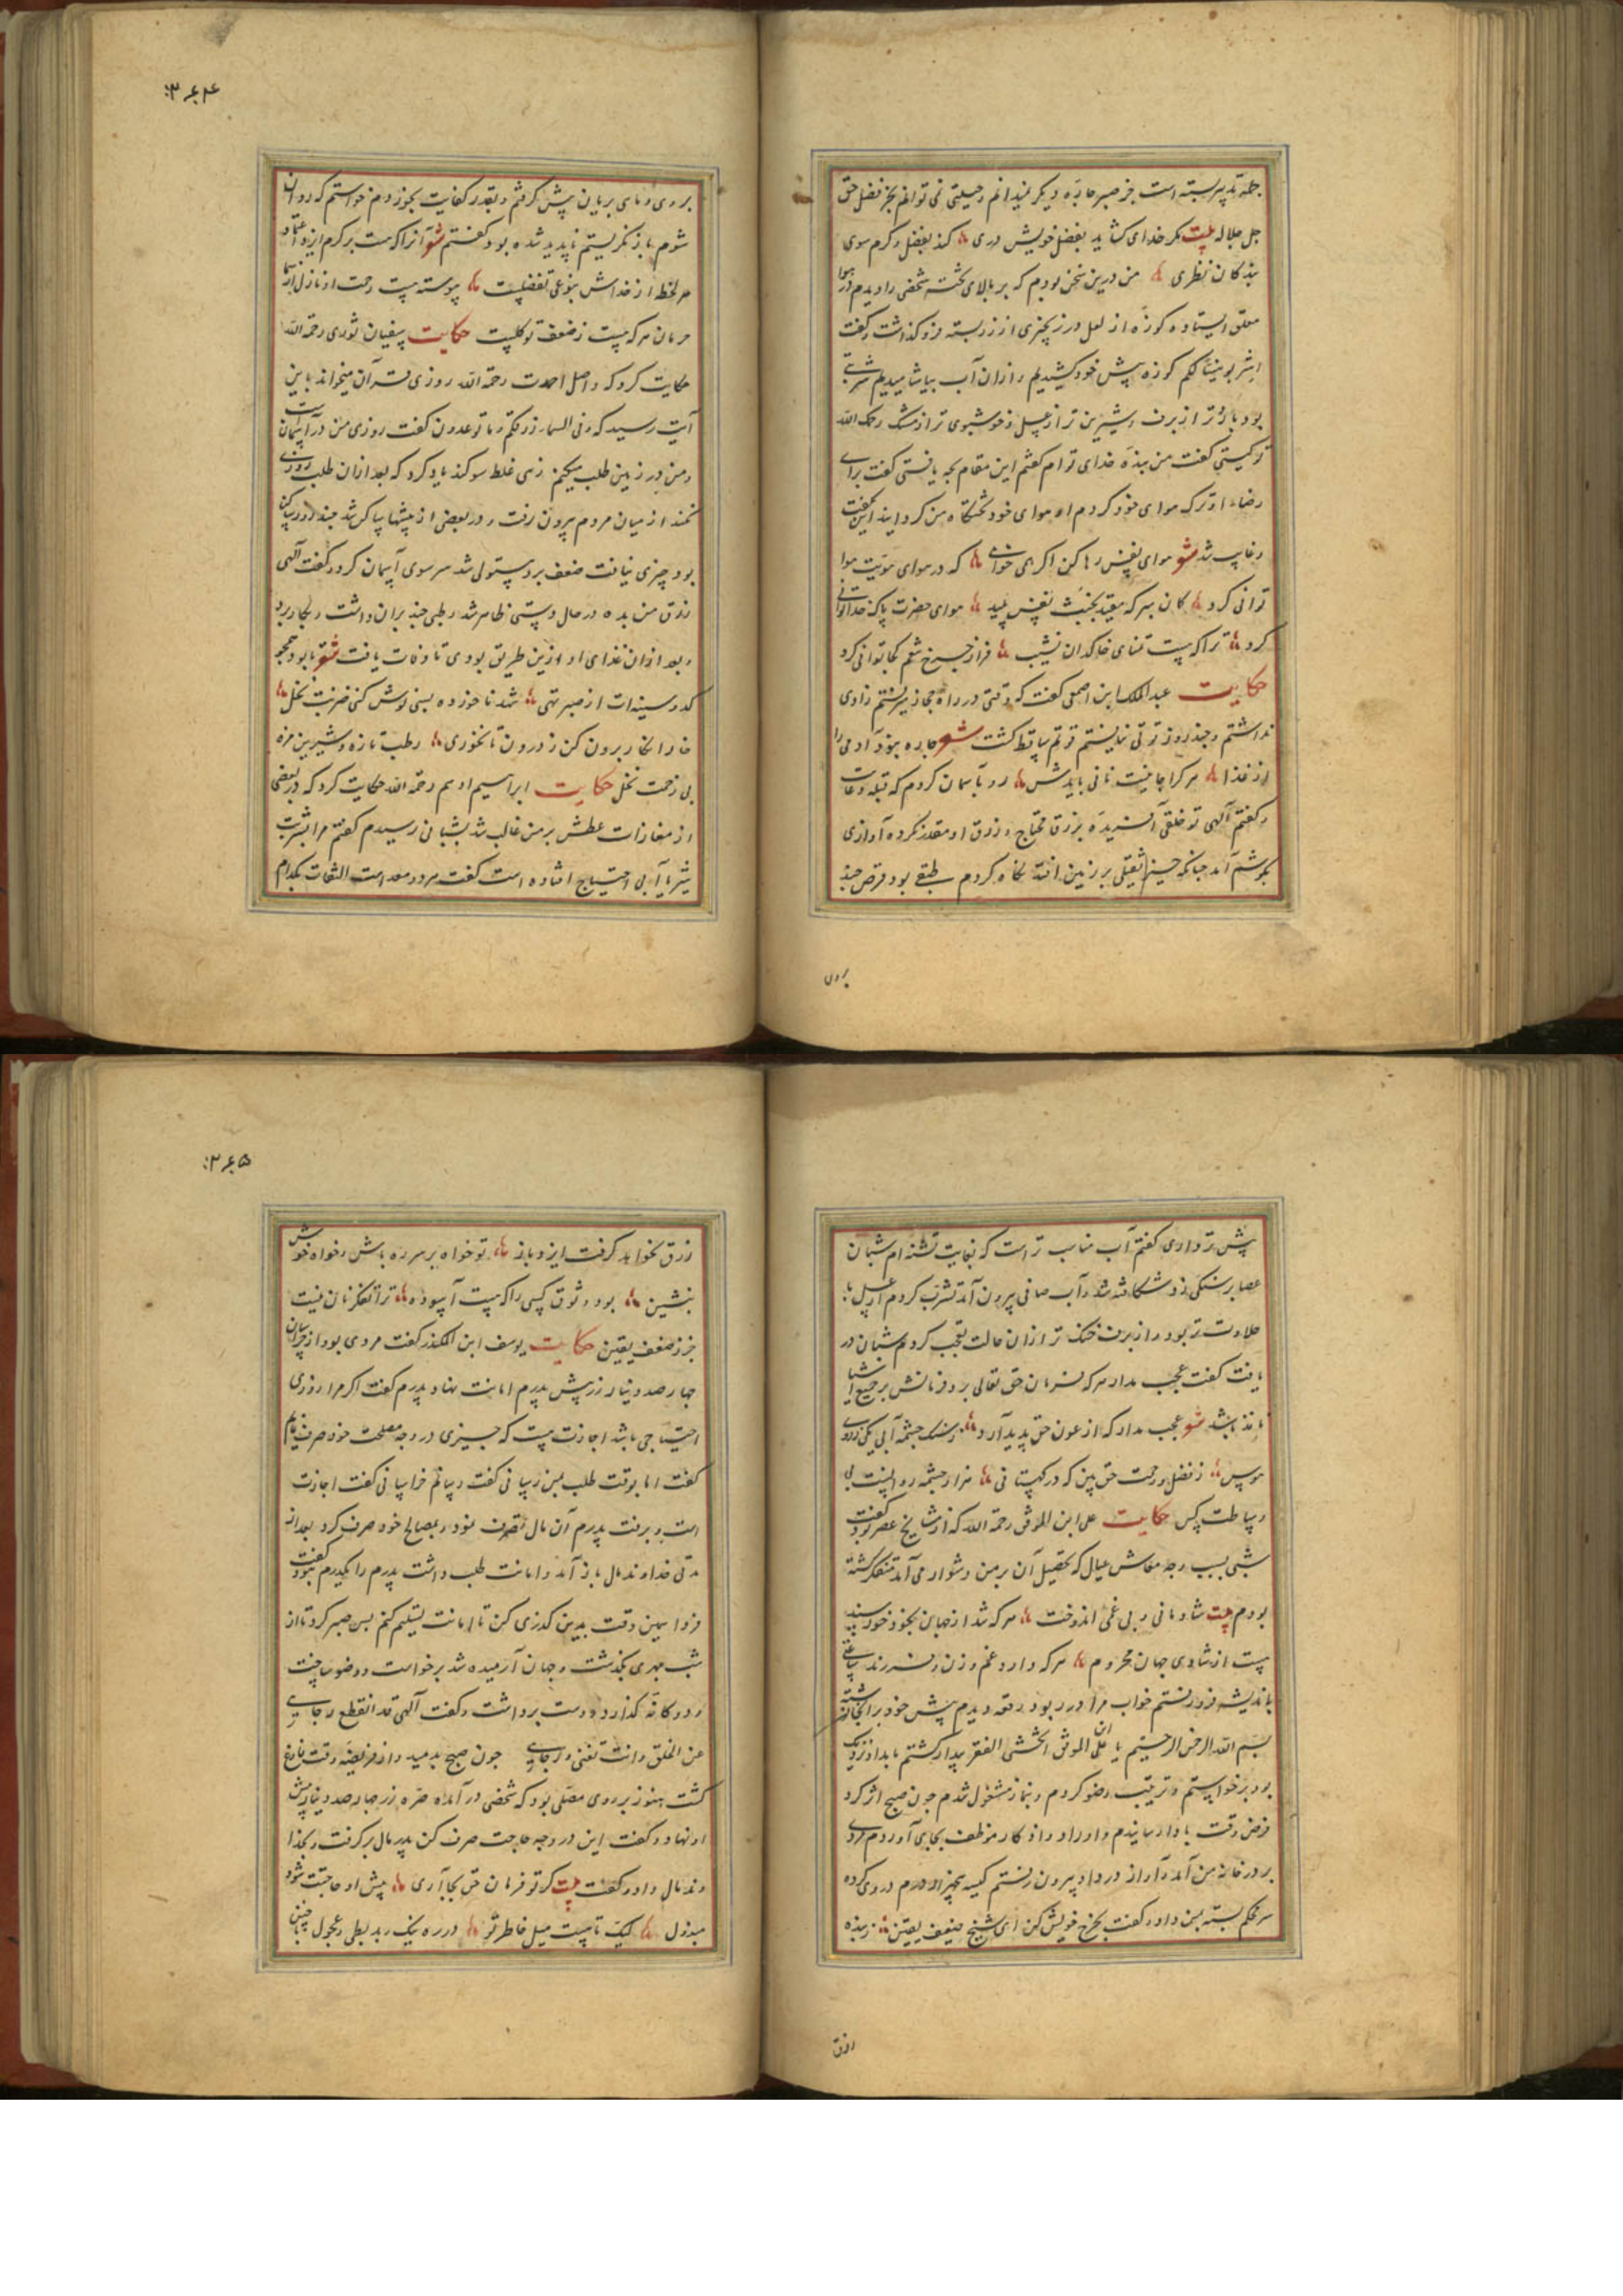 جمله تدبیر بسته است جز صبر چاره دیگر نمیدانم و حیلتی نمی توانم بجز فضل حق
جل جلاله بیت مگر خدای گشاید بفضل خویش دری کند بفضل و کرم سوی
بندگان نظری من درین سخن بودم که بر بالای تخته شخصی را دیدم در هوا
معلق ایستاده کوزه از لعل در زنجیری از زر بسته فرو گذاشت و گفت
اشربوا هنیئا لکم کوزه پیش خود کشیدیم و ازان آب بیاشامیدیم شربتی
بود باردتر از برف و شیرین تر از عسل و خوشبوی تر از مشک رحمک الله
تو کیستی گفت من بنده خدای توام گفتم این مقام بچه یافتی گفت برای
رضاء او ترک هوای خود کردم او هوای خود تختگاه من گردانید این بگفت
و غایب شد شعر هوای نفس رها کن اگر همی خواهی که در هوای هویت هوا
توانی کرد گمان مبر که مقید بخبث نفس پلید هوای حضرت پاک خدا توانی
کرد ترا که هست تمنای خاکدان نشیب فراز چرخ نهم کجا توانی کرد
حکایت عبد الملک ابن اصمعی گفت که وقتی در راه حجاز میرفتم زادی
نداشتم و چند روز قوتی نیافتم قوتم ساقط گشت شعر چاره نبود آدمی را
از غذا هر کرا جانیست نانی بایدش رو بآسمان کردم که قبله دعاست
و گفتم آلهی تو خلقی آفریده برزق محتاج و رزق او مقدر کرده آوازی
بگوشم آمد چنانکه چیز ثقیلی بر زمین افتد نگاه کردم طبقی بود قرص چند
بروی
۳۶۴
بروی و ماهی بریان پیش گرفتم و بقدر کفایت بخوردم خواستم که روان
شوم باز نگریستم ناپدید شده بود گفتم شعر آنرا که هست بر کرم ایزد اعتماد
هر لحظه از خداش بنوعی تفضلیست پیوسته هست رحمت او نازل از سما
حرمان هر که هست ز ضعف توکلیست حکایت سفیان ثوری رحمة الله
حکایت کرد که واصل احدب رحمة الله روزی قرآن میخواند باین
آیت رسید که و فی السماء رزقکم و ما توعدون گفت روزی من در آسمانست
و من در زمین طلب میکنم زهی غلط سوگند یاد کرد که بعد ازان طلب روزی
نکند از میان مردم بیرون رفت و در بعضی از بیشها ساکن شد چند روز ساکن
بود چیزی نیافت ضعف برو مستولی شد سر سوی آسمان کرد و گفت آلهی
رزق من بده در حال دستی ظاهر شد رطبی چند بران داشت و بکار برد
و بعد ازان غذای او ازین طریق بودی تا وفات یافت شعر تا بود همچو
کدو سینه‌ات از صبر تهی شهد ناخورده بسی نوش کنی ضربت نحل
خار انکار برون کن ز درون تا بخوری رطب تازه و شیرین مزه
بی زحمت نخل حکایت ابراهیم ادهم رحمة الله حکایت کرد که در بعضی
از مغازات عطش بر من غالب شد بشبانی رسیدم گفتم مرا بشربت
شیر یا آبی احتیاج افتاده است گفت هر دو معد است التفات بکدام
پیش تر داری گفتم آب مناسب تر است که بغایت تشنه ام شبان
عصا بر سنگی زد شکافته شد و آب صافی بیرون آمد تشرب کردم از عسل با
حلاوت تر بود و از برف خنک تر ازان حالت تعجب کردم شبان در
یافت گفت عجب مدار هر که فرمان حق تعالی برد فرمانش بر جمیع اشیا
نافذ باشد شعر عجب مدار که از عون حق پدید آرد ز سنگ چشمه آبی یکی
ز فضل و رحمت حق بین که در کهستانی هزار چشمه روانست بی
وساطت کس حکایت علی ابن الموفق رحمة الله که از مشایخ عصر بود گفت
شبی بسبب وجه معاش عیال که تحصیل آن بر من دشوار می آمد متفکر گشته
بودم بیت شادمانی و بی غمی اندوخت هر که شد از جهان بخود خورسند
هست از شادی جهان محروم هر که دارد غم زن و فرزند ساعتی
باندیشه فرو رفتم خواب مرا در ربود رقعه دیدم پیش خود بر آنجا نوشته
بسم الله الرحمن الرحیم یا علی ابن الموفق اتخشی الفقر بیدار گشتم بامداد نزدیک
بود برخواستم و ترتیب وضو کردم و بنماز مشغول شدم چون صبح اثر کرد
فرض وقت بادا رسانیدم و اوراد و اذکار موظف بجای آوردم مردی
بر در خانه من آمد و آواز در داد بیرون رفتم کیسه پنجهزار درم در وی کرده
سر محکم بسته بمن داد و گفت بخرج خویش کن ای شیخ ضعیف یقین ز بنده
رزق
۳۶۵
رزق نخواهد گرفت ایزد باز تو خواه بر سر ره باش و خواه خوش
بنشین بود وثوق کسی را که هست آسوده ترا تفکر نان نیست
جز ز ضعف یقین حکایت یوسف ابن المنکدر گفت مردی بود از خراسان
چهار صد دینار زر پیش پدرم امانت نهاد پدرم گفت اگر مرا روزی
احتیاجی باشد اجازت هست که چیزی در وجه مصلحت خود صرف نمایم
گفت اما بوقت طلب بمن رسانی گفت رسانم خراسانی گفت اجازت
است و برفت پدرم آن مال تصرف نمود و بمصالح خود صرف کرد بعد از
مدتی خداوند مال باز آمد و امانت طلب داشت پدرم را نبود گفت
فردا بهمین وقت بدین گذری کن تا امانت تسلیم کنم پس صبر کرد تا از
شب بهری بگذشت و جهان آرمیده شد برخواست و وضو ساخت
و دوگانه گذارد و دست برداشت و گفت آلهی قد انقطع رجایی
عن الخلق و انت ثقتی و رجایی چون صبح بدمید و از فریضه وقت فارغ
گشت هنوز بر روی مصلی بود که شخصی در آمد و صره زر چهار صد دینار پیش
او نهاد و گفت این در وجه حاجت صرف کن پدر مال برگرفت و بخدا
وند مال داد و گفت بیت گر تو فرمان حق بجا آری پیش او حاجتت شود
مبذول لیک تا هست میل خاطر تو در ره نیک و بد بطی و عجول چنین